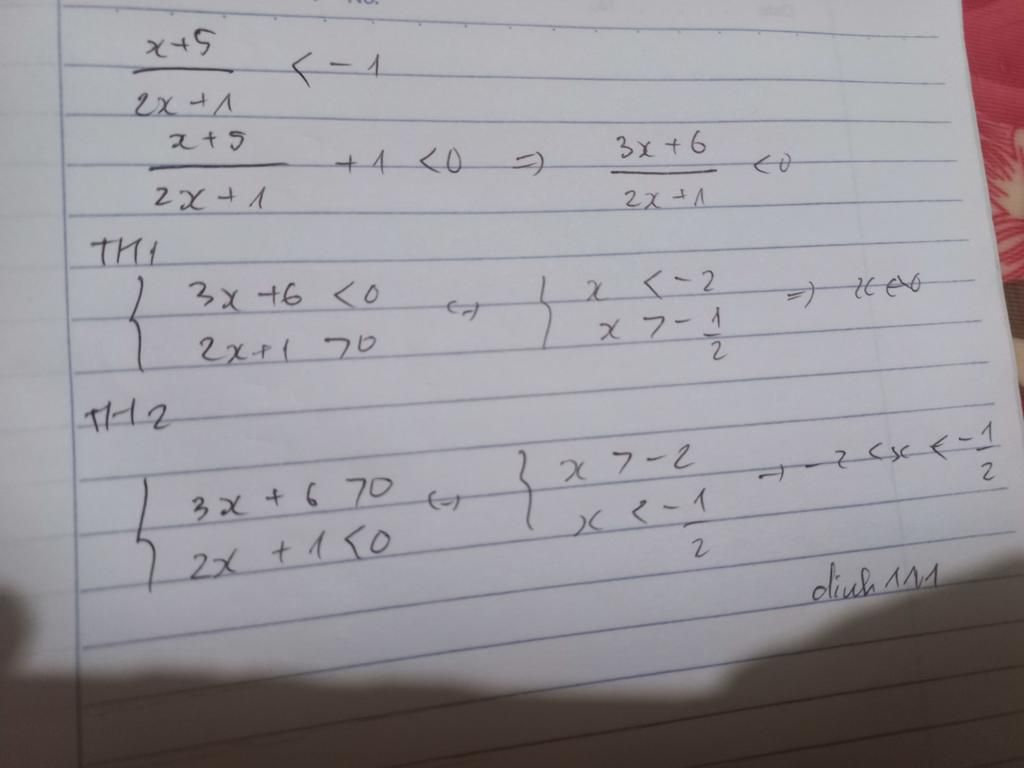 No.
x+5/2x+1 < -1
x+5/2x+1 +1 <0 => 3x+6/2x+1 <0
TH1
{ 3x+6 <0 <=> { x < -2 =>
2x+1 >0 x > -1/2
TH2
{ 3x+6 >0 <=> { x > -2 => -2 <x < -1/2
2x+1 <0 x < -1/2
dinh 11.1